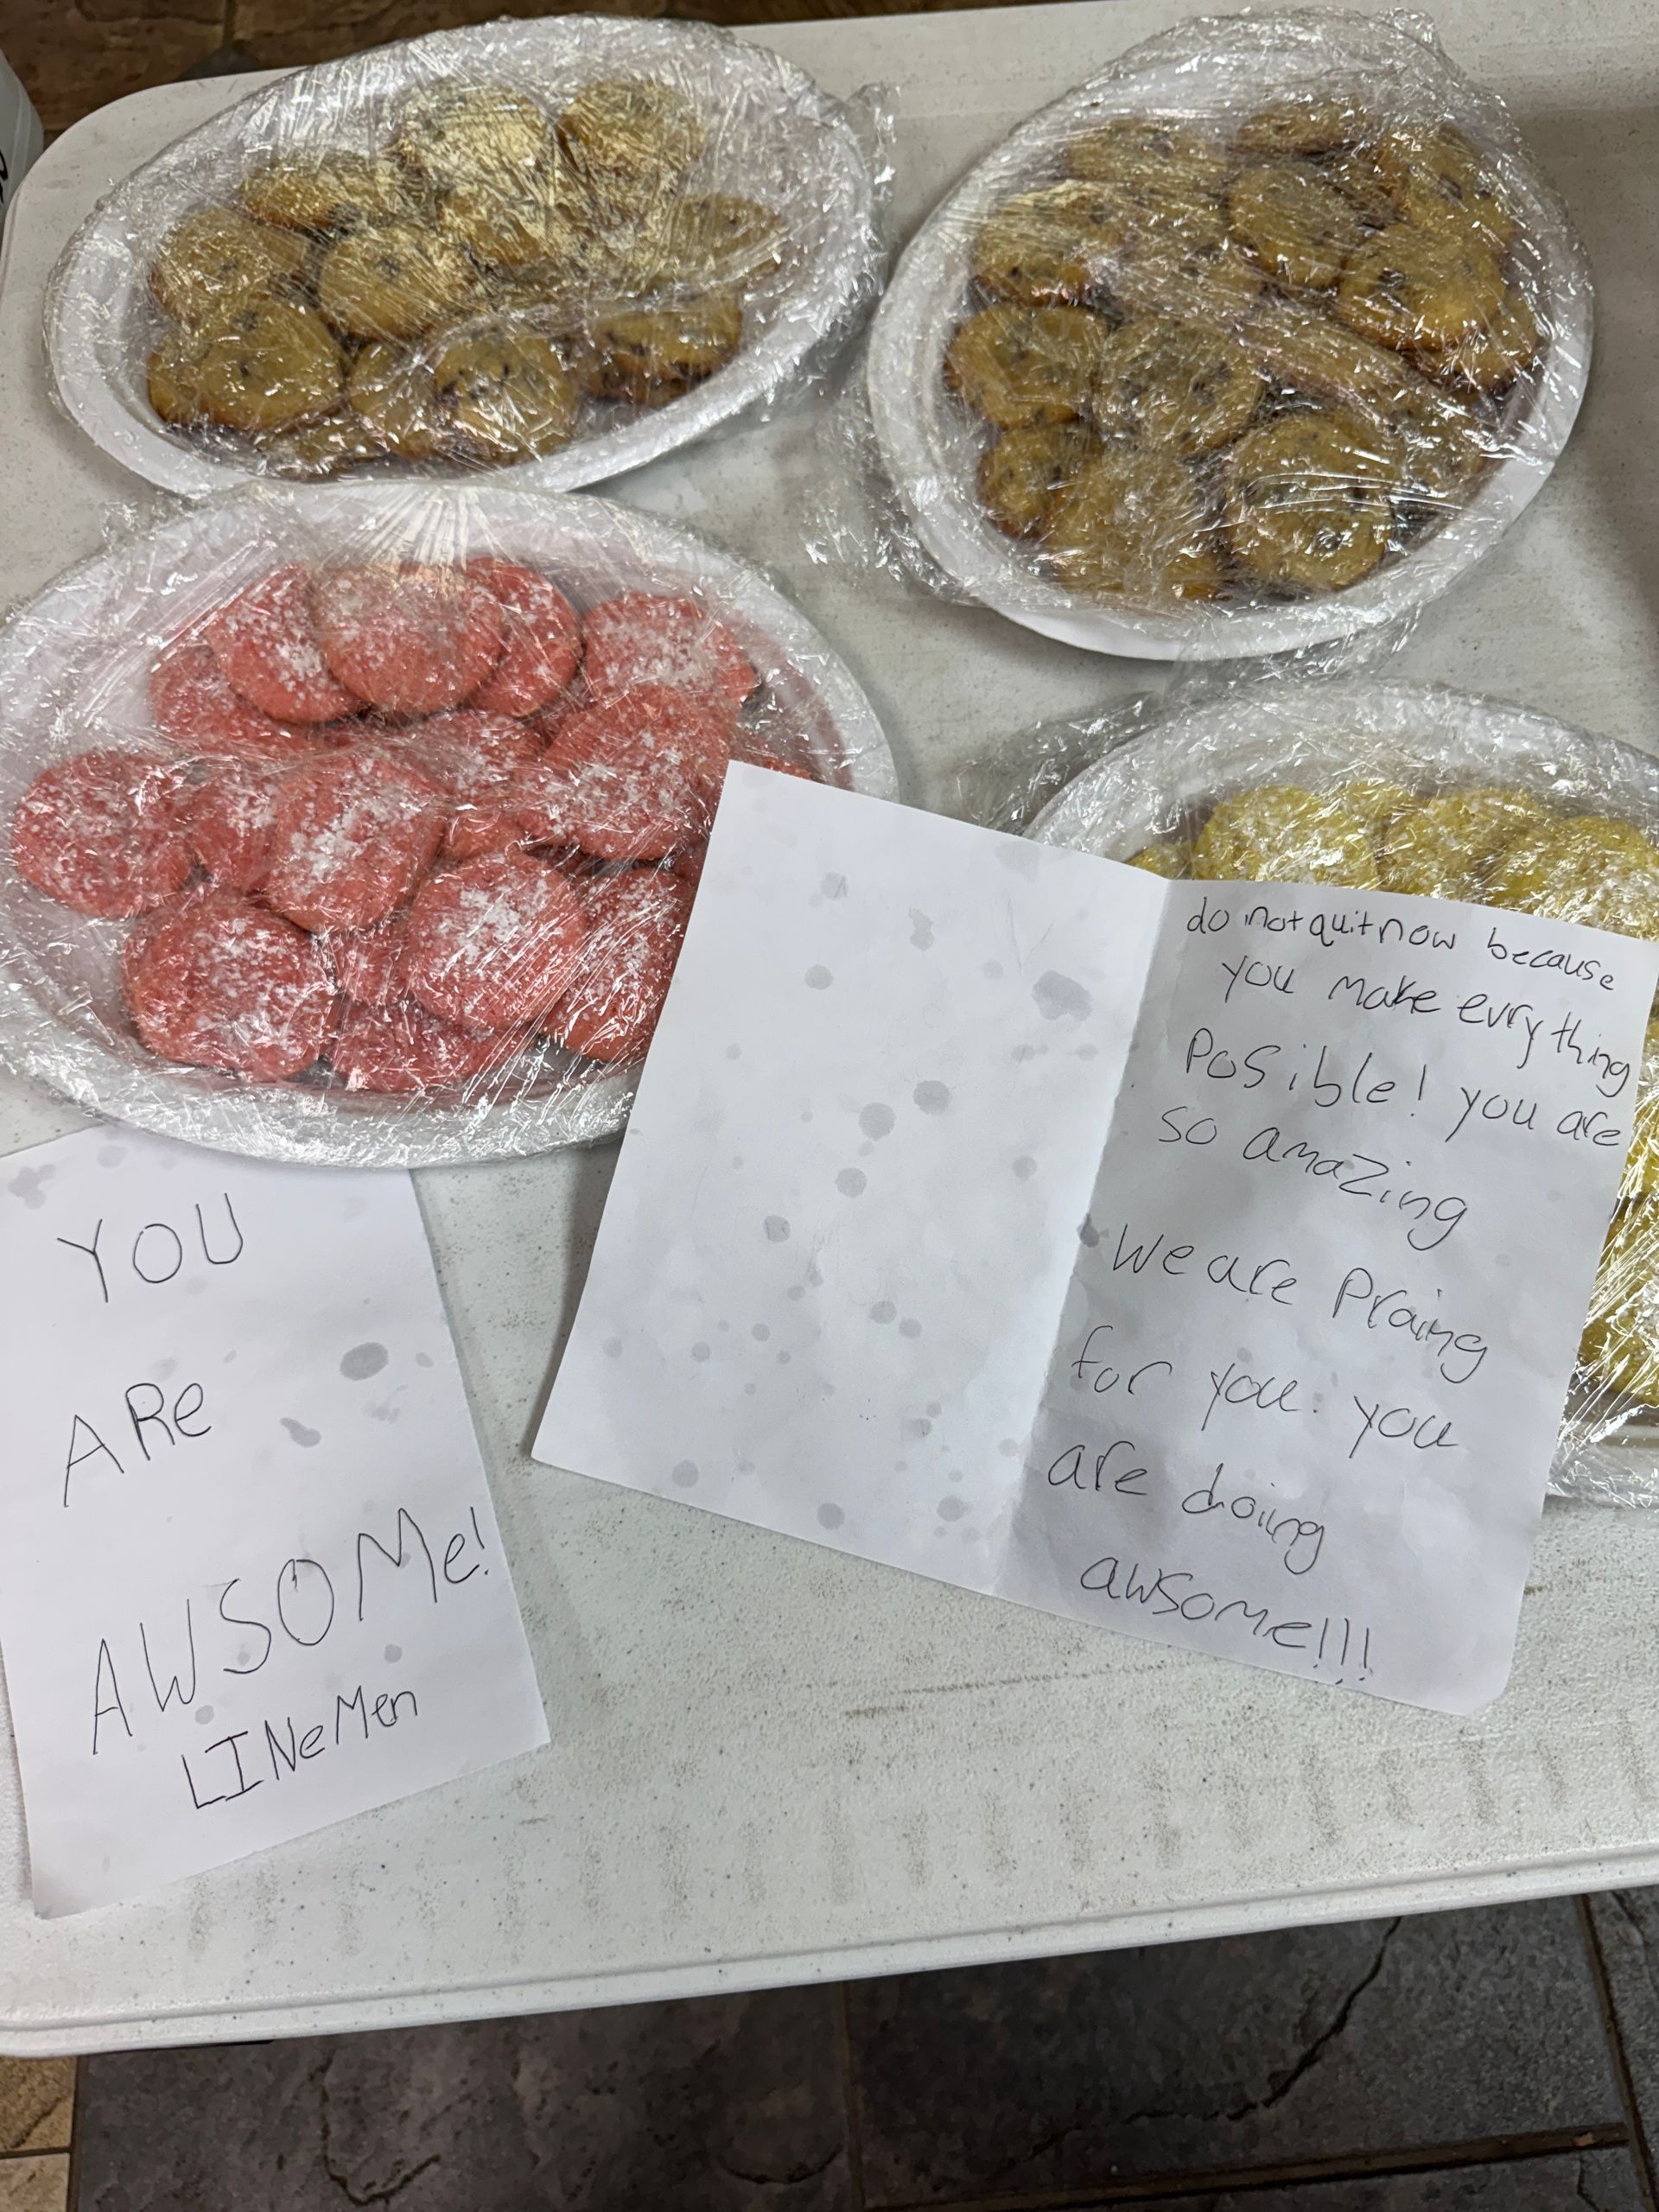 YOU
ARe
AWSOMe!
LINeMen
do not quit now because
you make evrything
Posible! you are
so amazing
We are Praing
for you. you
are doing
awsome!!!